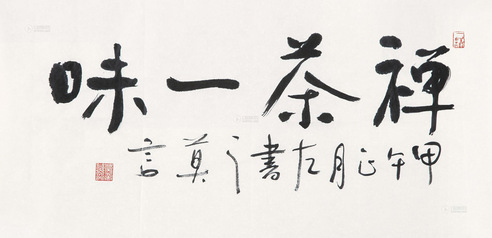 禅茶一味
甲午正月左書之莫言